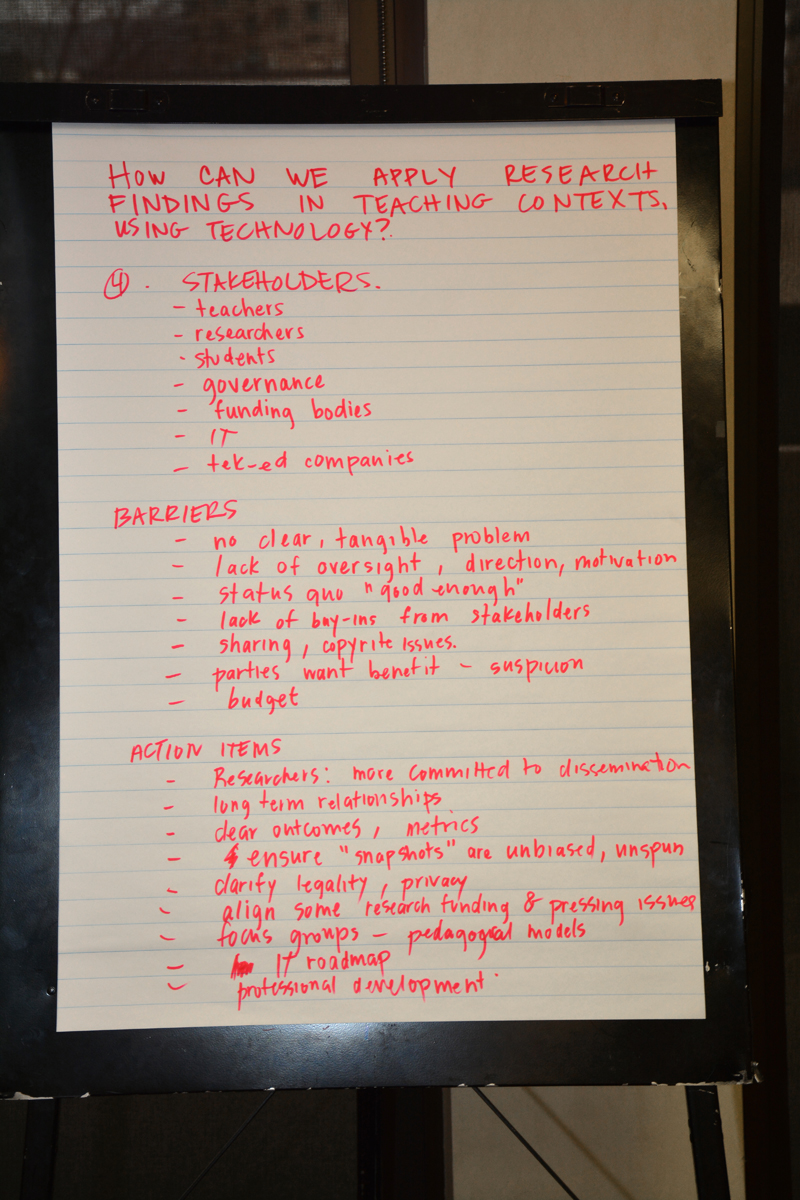 HOW CAN WE APPLY RESEARCH
FINDINGS IN TEACHING CONTEXTS,
USING TECHNOLOGY?
④. STAKEHOLDERS.
- teachers
- researchers
- students
- governance
- funding bodies
- IT
- tek-ed companies
BARRIERS
- no clear, tangible problem
- lack of oversight, direction, motivation
- status quo "good enough"
- lack of buy-ins from stakeholders
- sharing, copyrite issues.
- parties want benefit - suspicion
- budget
ACTION ITEMS
- Researchers: more committed to dissemination
- long term relationships
- clear outcomes, metrics
- ensure "snapshots" are unbiased, unspun
- clarify legality, privacy
- align some research funding & pressing issues
- focus groups - pedagogical models
- IT roadmap
- professional development.